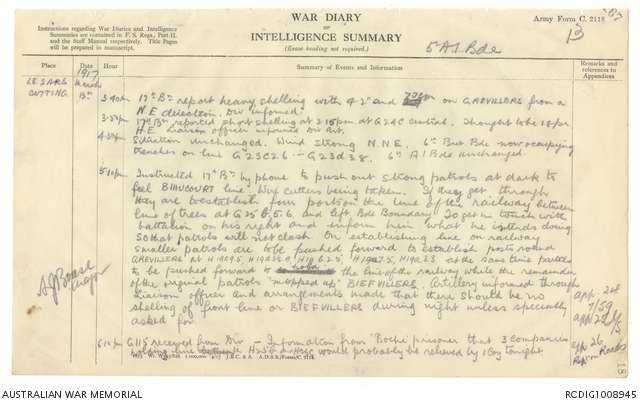 WAR DIARY
OF
INTELLIGENCE SUMMARY
(Erase heading not required.)
Instructions regarding War Diaries and Intelligence
Summaries are contained in F. S. Regs., Part II.
and the Staff Manual respectively. Title Pages
will be prepared in manuscript.
Army Form C. 2118
13
5 A.I. Bde
Place
Date
Hour
Summary of Events and Information
Remarks and
references to
Appendices
LE SARS
CUTTING
1917
March
13th
17th Bn report heavy shelling with 4.2" and on GREVILLERS from a
N.E. direction. Div informed.
17th Bn reported short shelling at 2.15pm at G24C central. Thought to be 18 pr
H.E. Liaison officer informed
Situation unchanged. Wind strong N.N.E. 6th Bde now occupying
trenches on line G23C26 - G23d38. 6th A.I. Bde unchanged.
5.10pm
Instructed 17th Bn by phone to push out strong patrols at dark to
feel line. Wire cutters being taken. If they get through
they are to establish four posts on the line of the railway between
line of trees at G25 and left Bde Boundary. To get in touch with
battalion on his right and inform him what he intends doing
so that patrols will not clash. On establishing line on railway
smaller patrols are to be pushed forward to establish posts round
at the same time parties
to be pushed forward to the line of the railway while the remainder
of the original patrols "mopped up" BIEFVILLERS. Artillery informed through
Liaison officer and arrangements made that there should be no
shelling of front line or BIEFVILLERS during night unless specially
asked for.
G115 received from Div - Information from Boche prisoner that 3 companies
holding line would probably be relieved by 1 Coy tonight
Major
app 24
app 26
AUSTRALIAN WAR MEMORIAL
RCDIG1008945